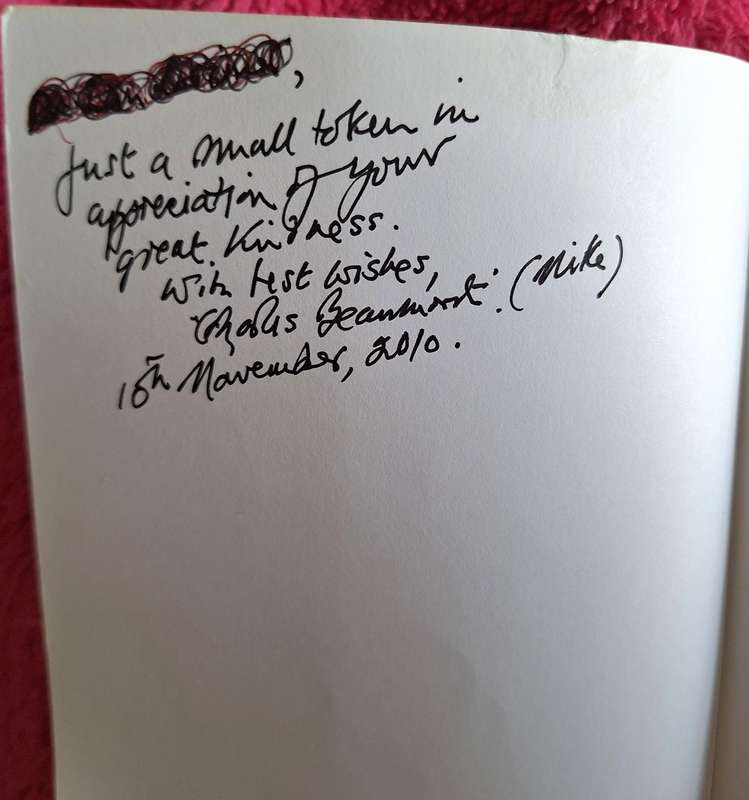 ,
Just a small token in
appreciation of your
great kindness.
With best wishes,
'Charles Beaumont'. (Mike)
16th November, 2010.